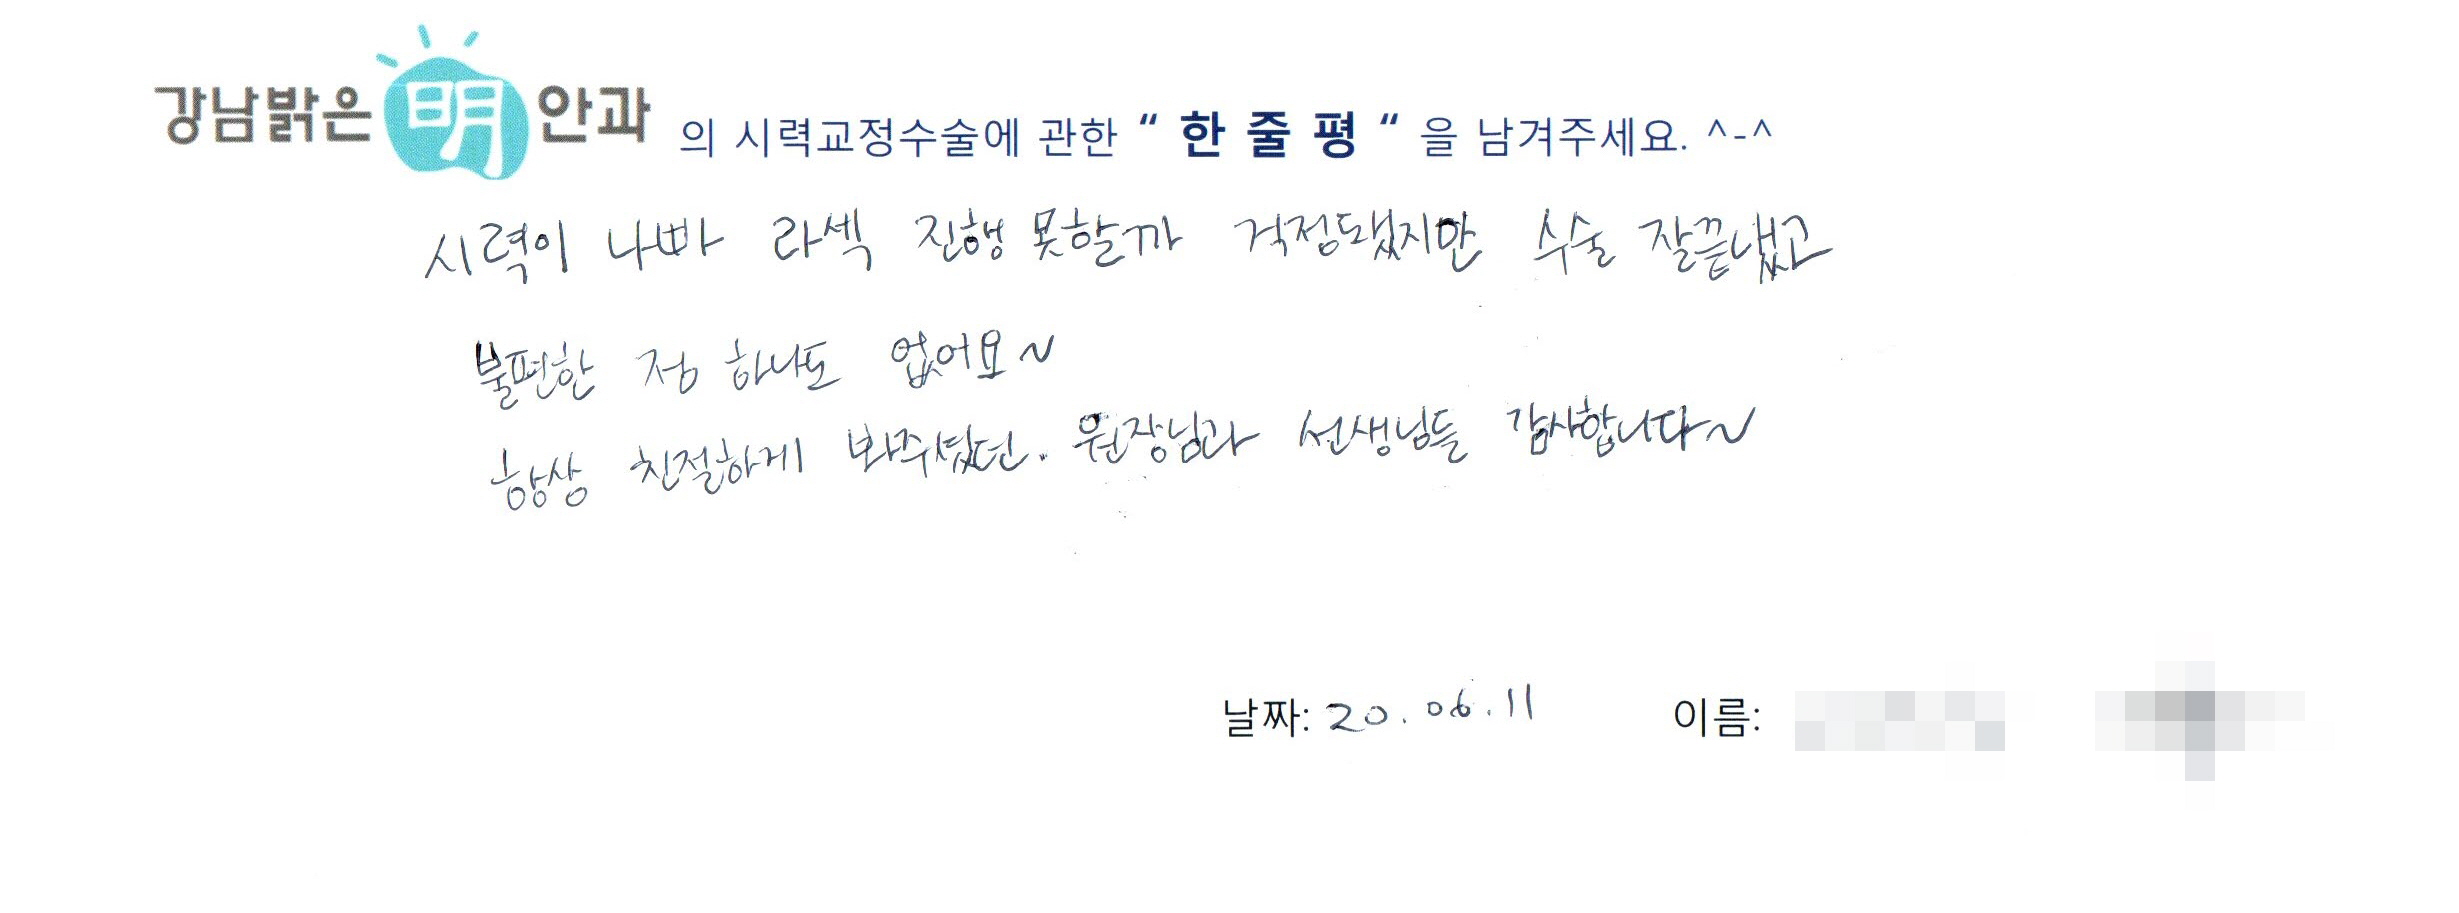 강남밝은 明 안과 의 시력교정수술에 관한 “ 한 줄 평 “ 을 남겨주세요. ^-^
시력이 나빠 라섹 진행 못할까 걱정됐지만 수술 잘끝냈고
불편한 점 하나도 없어요~
항상 친절하게 봐주셨던. 원장님과 선생님들 감사합니다~
날짜: 20. 06. 11 이름: